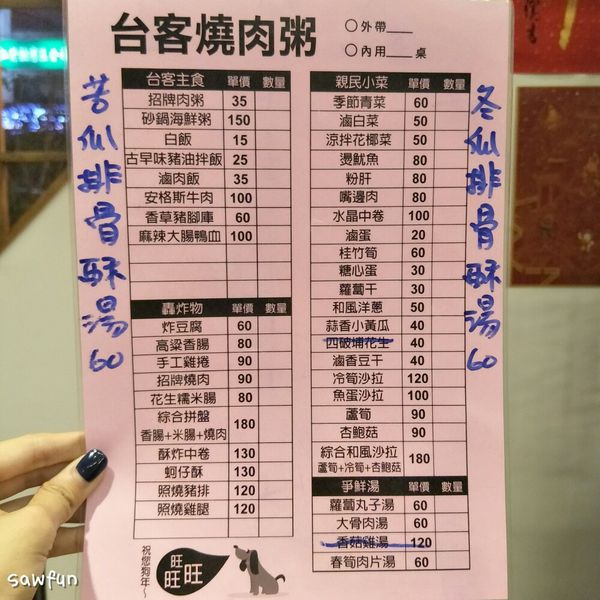 台客燒肉粥
○外帶____
○內用____桌
苦瓜排骨酥湯60
台客主食 單價 數量
招牌肉粥 35
砂鍋海鮮粥 150
白飯 15
古早味豬油拌飯 25
滷肉飯 35
安格斯牛肉 100
香草豬腳庫 60
麻辣大腸鴨血 100
轟炸物 單價 數量
炸豆腐 60
高粱香腸 80
手工雞捲 90
招牌燒肉 90
花生糯米腸 80
綜合拼盤 180
香腸+米腸+燒肉
酥炸中卷 130
蚵仔酥 130
照燒豬排 120
照燒雞腿 120
祝您狗年~
旺旺旺
親民小菜 單價 數量
季節青菜 60
滷白菜 50
涼拌花椰菜 50
燙魷魚 80
粉肝 80
嘴邊肉 80
水晶中卷 100
滷蛋 20
桂竹筍 60
糖心蛋 30
蘿蔔干 30
和風洋蔥 50
蒜香小黃瓜 40
四破埔花生 40
滷香豆干 40
冷筍沙拉 120
魚蛋沙拉 100
蘆筍 90
杏鮑菇 90
綜合和風沙拉 180
蘆筍+冷筍+杏鮑菇
爭鮮湯 單價 數量
蘿蔔丸子湯 60
大骨肉湯 60
香菇雞湯 120
春筍肉片湯 60
冬瓜排骨酥湯60
sawfun